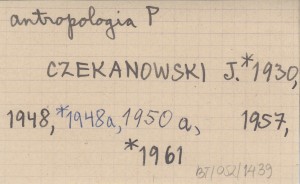 antropologia P
CZEKANOWSKI J. *1930,
1948, *1948a, 1950a, 1957,
*1961
BT/052/1439